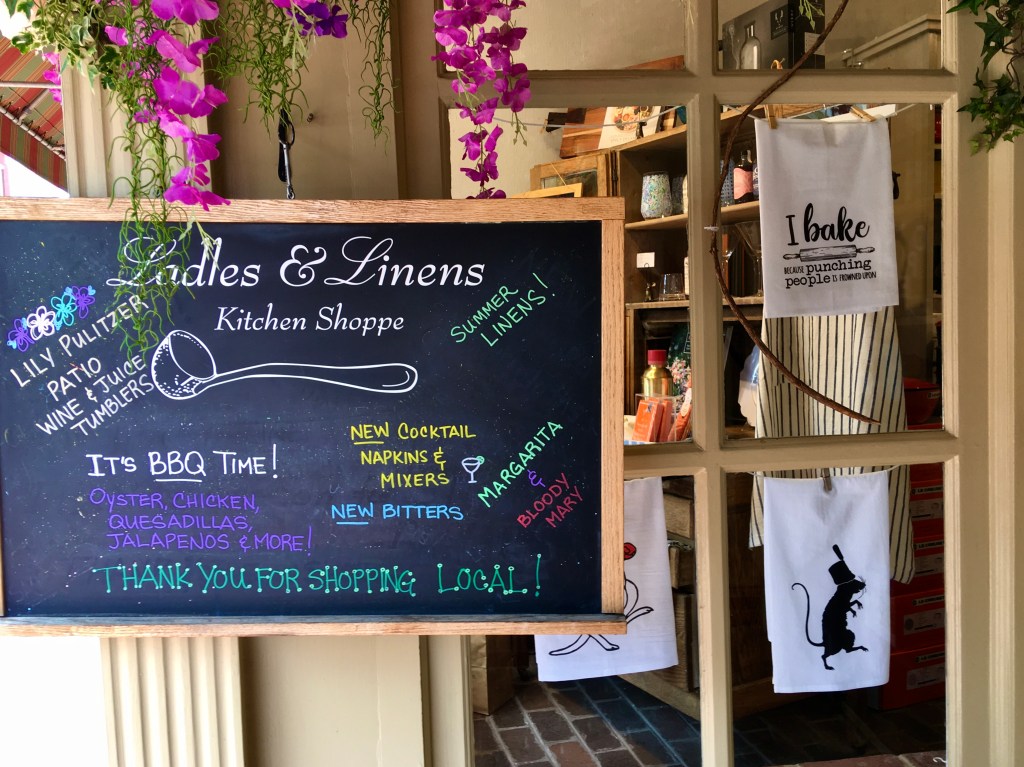 Ladles & Linens
Kitchen Shoppe
LILY PULITZER
PATIO
WINE & JUICE
TUMBLERS
SUMMER
LINENS!
IT'S BBQ TIME!
OYSTER, CHICKEN,
QUESADILLAS,
JALAPENOS & MORE!
NEW COCKTAIL
NAPKINS &
MIXERS
NEW BITTERS
MARGARITA
&
BLOODY
MARY
THANK YOU FOR SHOPPING LOCAL!
I bake
BECAUSE punching
people IS FROWNED UPON